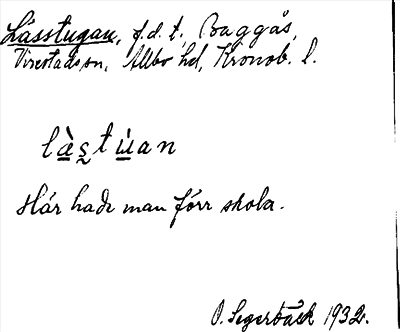 Lässtugan, f.d. t. Baggås,
Virestads sn, Allbo hd, Kronob. l.
lą̀s̰tų́an
Här hade man förr skola.
O. Segerbäck 1932.